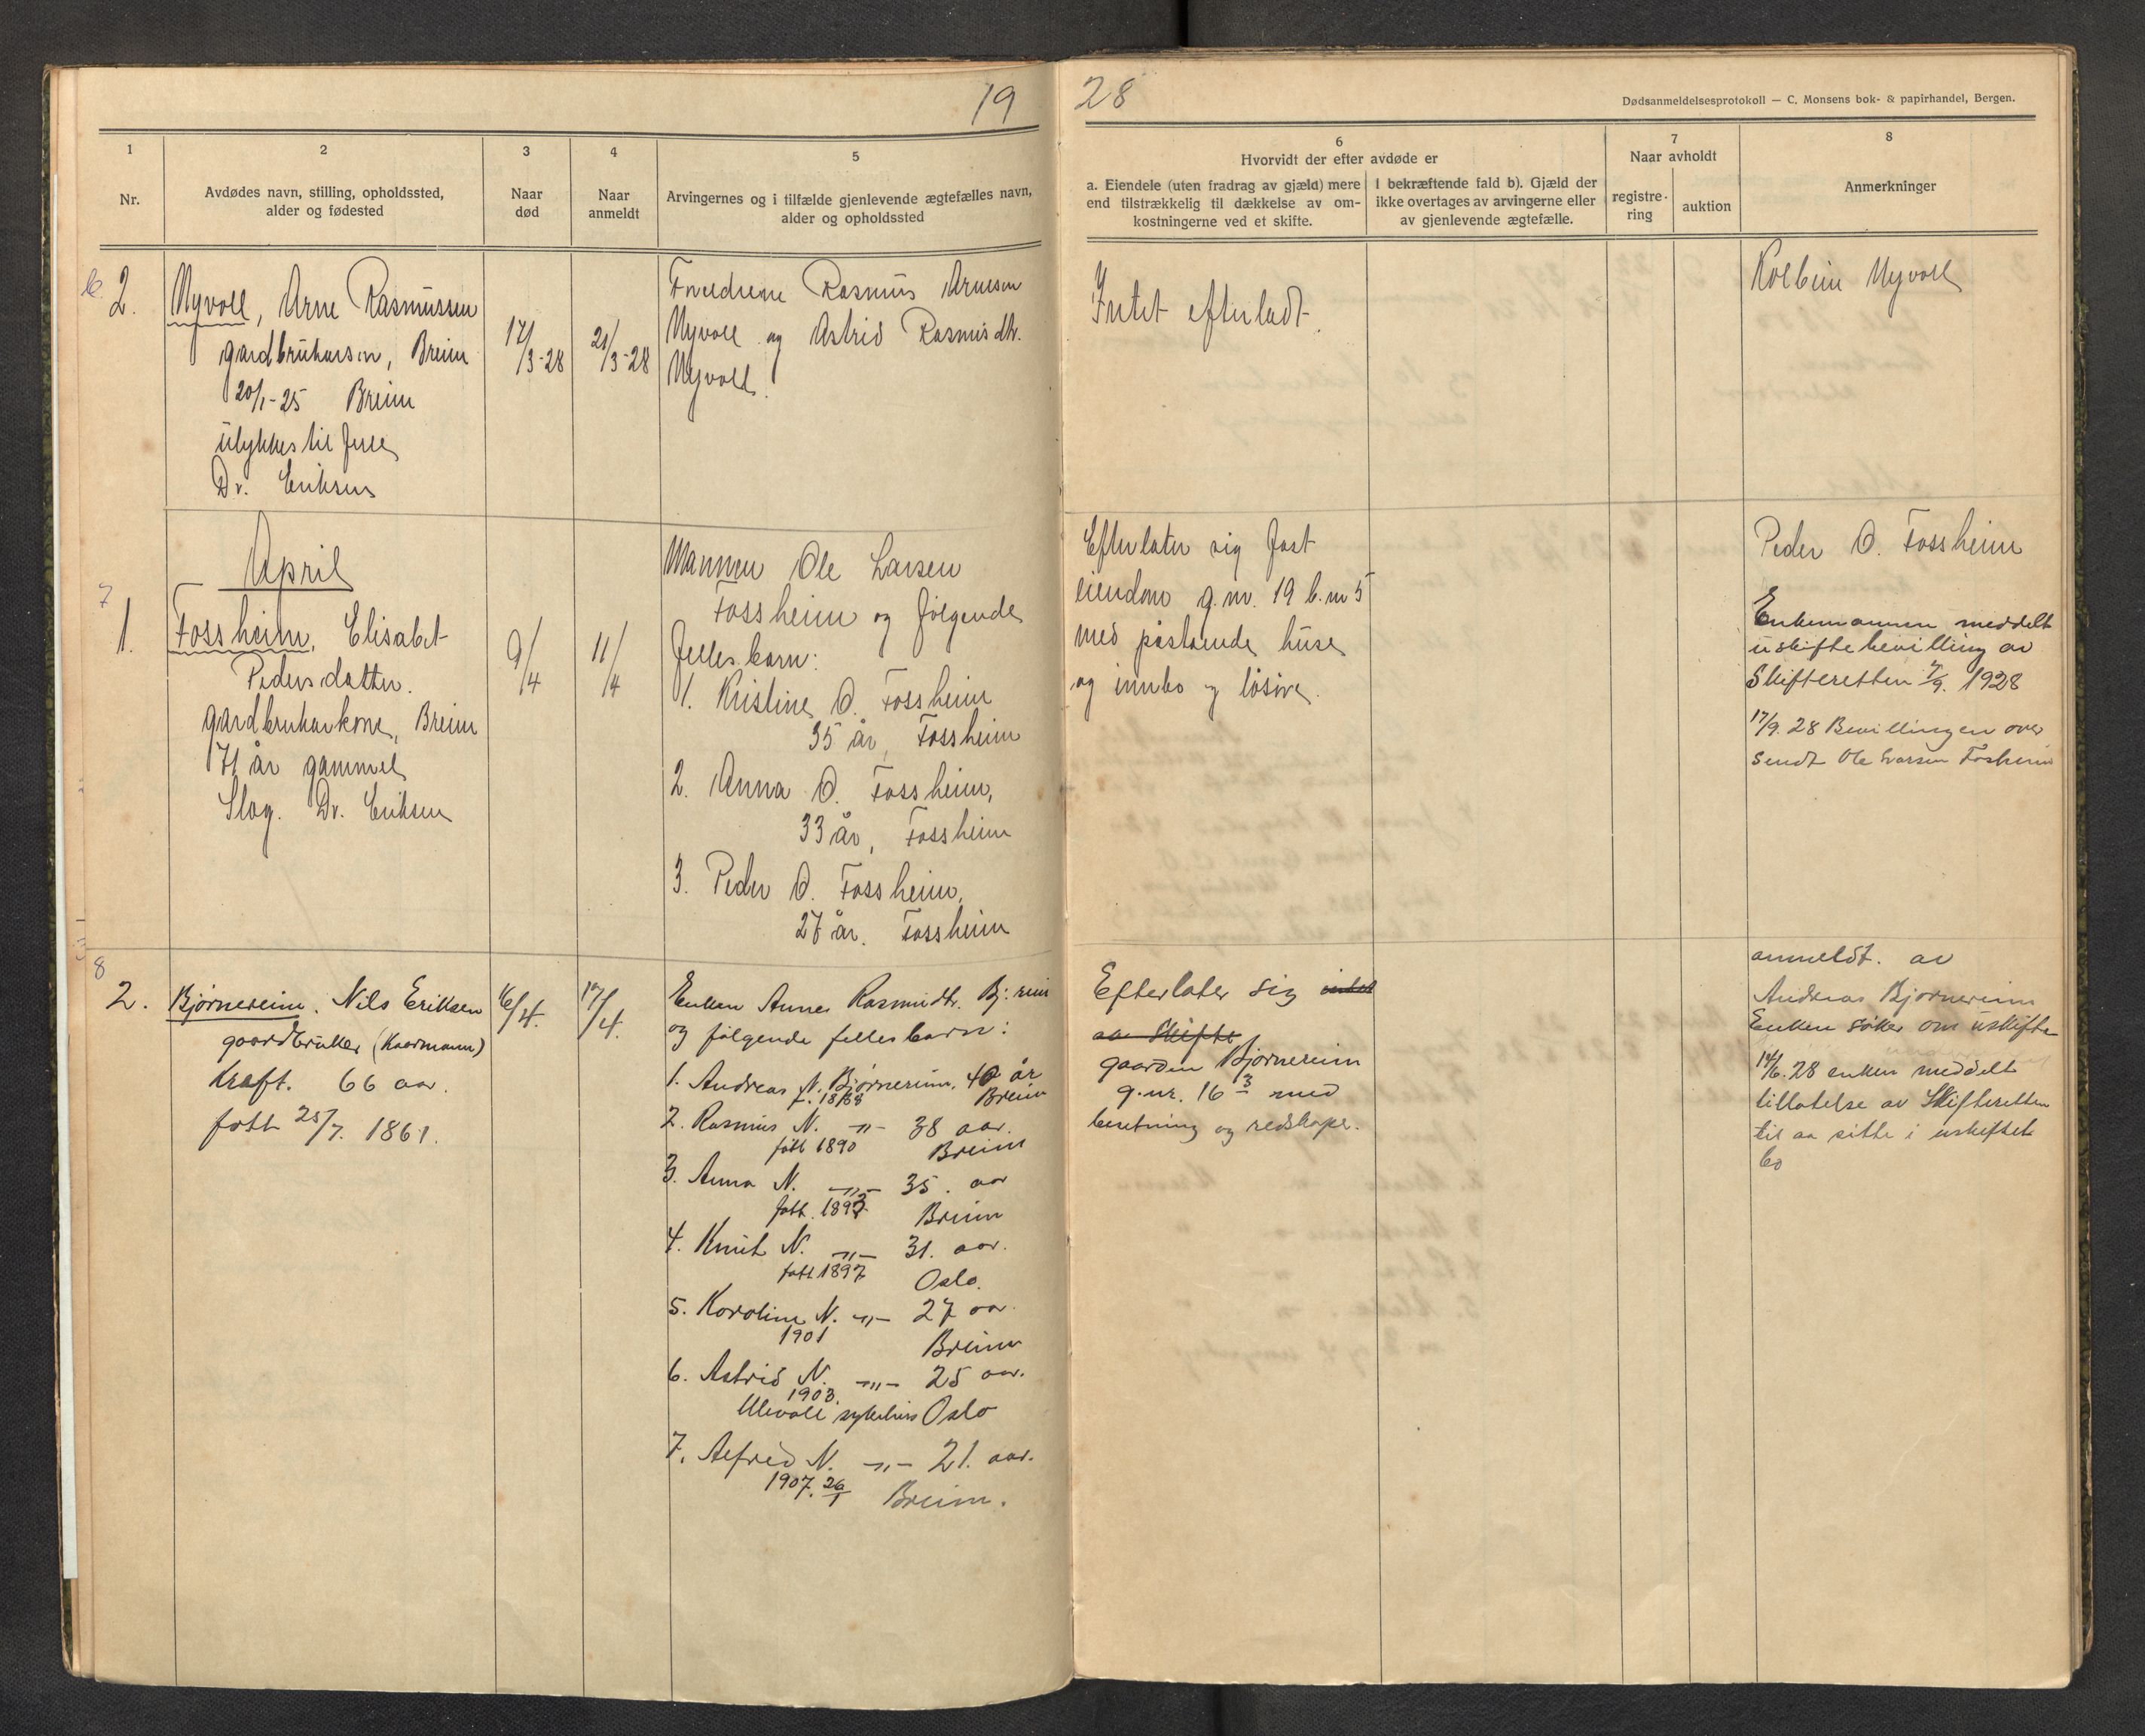 19 28
Dødsanmeldelsesprotokoll — C. Monsens bok- & papirhandel, Bergen.
1
Nr.
2
Avdødes navn, stilling, opholdssted,
alder og fødested
3
Naar
død
4
Naar
anmeldt
5
Arvingernes og i tilfælde gjenlevende ægtefælles navn,
alder og opholdssted
6
Hvorvidt der efter avdøde er
a. Eiendele (uten fradrag av gjæld) mere
end tilstrækkelig til dækkelse av om-
kostningerne ved et skifte.
I bekræftende fald b). Gjæld der
ikke overtages av arvingerne eller
av gjenlevende ægtefælle.
7
Naar avholdt
registre-
ring
auktion
8
Anmerkninger
6.
2.
Myvoll, Arne Rasmussen
gardbrukarsøn, Breim
20/1-25 Breim
Dr. Eriksen
17/3-28
21/3-28
Foreldrene Rasmus Arnesen
Myvoll og Astrid Rasmusdtr.
Myvoll.
Intet efterladt.
Kolbein Myvoll
April
7
1.
Fossheim, Elisabet
Pedersdatter.
gardbrukarkone, Breim
71 år gammel
Slag. Dr. Eriksen
9/4
11/4
Mannen Ole Larsen
Fossheim og følgende
fellesbarn:
1. Kristine O. Fossheim
35 år, Fossheim
2. Anna O. Fossheim,
33 år, Fossheim
3. Peder O. Fossheim,
27 år. Fossheim
Efterlater sig fast
eiendom g.nr. 19 b.nr 5
med påstående huse
og innbo og løsøre.
Peder O. Fossheim
Enkemannen meddelt
uskiftebevilling av
Skifteretten 7/9. 1928
17/9.28 Bevillingen over
sendt Ole Larsen Fosheim
8
2.
Bjørnereim. Nils Eriksen
gaardbruker (Kaarmann)
Kræft. 66 aar.
født 25/7. 1861.
16/4.
17/4.
Enken Anne Rasmusdtr. Bj:reim
og følgende fellesbarn:
1. Andreas N. Bjørnereim. 40 år
f. 1888 Breim
2. Rasmus N. -"- 38 aar.
født 1890 Breim
3. Anna N. -"- 35. aar
født. 1893 Breim
4. Knut N. -"- 31. aar.
født 1897 Oslo.
5. Karoline N. -"- 27 aar.
1901 Breim
6. Astrid N. -"- 25 aar.
1903.
Ulevåll sykehus Oslo
7. Alfred N. -"- 21. aar.
1907. 26/1 Breim.
Efterlater sig intet
aa skifte
gaarden Bjørnereim
g.nr. 16 3 med
besetning og redskaper.
anmeldt. av
Andreas Bjørnereim
Enken søker om uskifte
14/6.28 enken meddelt
tillatelse av Skifteretten
til aa sitte i uskiftet
bo